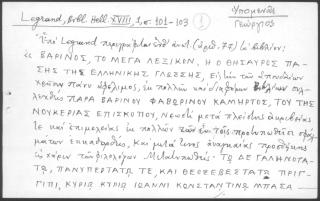 Legrand, Bibl. Hell. XVIII, 1, σ. 101-103 1
Ὑπομενᾶς
Γεώργιος
Ὑπὸ Legrand περιγράφεται ὑπ' ἀριθ. 77) τὸ βιβλίον:
« ΒΑΡΙΝΟΣ, ΤΟ ΜΕΓΑ ΛΕΞΙΚΟΝ, Η Ο ΘΗΣΑΥΡΟΣ ΠΑ-
ΣΗΣ ΤΗΣ ΕΛΛΗΝΙΚΗΣ ΓΛΩΣΣΗΣ, Εἰς τῶν σπουδαίων
πάνυ ὠφέλιμος, ἐκ πολλῶν καὶ διαφόρων βιβλίων
παρὰ ΒΑΡΙΝΟΥ ΦΑΒΩΡΙΝΟΥ ΚΑΜΗΡΤΟΣ, ΤΟΥ ΤΗΣ
ΝΟΥΚΕΡΙΑΣ ΕΠΙΣΚΟΠΟΥ, Νεωστὶ μετὰ πλείστης ἀκριβείας
τε καὶ ἐπιμελείας ἐκ πολλῶν τῶν ἐν τοῖς προτυπωθεῖσι σφαλ-
μάτων ἐκκαθαρθὲν, καὶ μετὰ τῆς ἀναγκαίας προσθήκης
εἰς χάριν τῶν φιλολόγων Μετατυπωθέν· ΤΩ ΔΕ ΓΑΛΗΝΟΤΑ-
ΤΩ, ΠΑΝΥΠΕΡΤΑΤΩ ΤΕ, ΚΑΙ ΘΕΟΣΕΒΕΣΤΑΤΩ ΠΡΙΓ-
ΓΙΠΙ, ΚΥΡΙΩ ΚΥΡΙΩ ΙΩΑΝΝΗ ΚΩΝΣΤΑΝΤΙΝΩ ΜΠΑΣΑ—